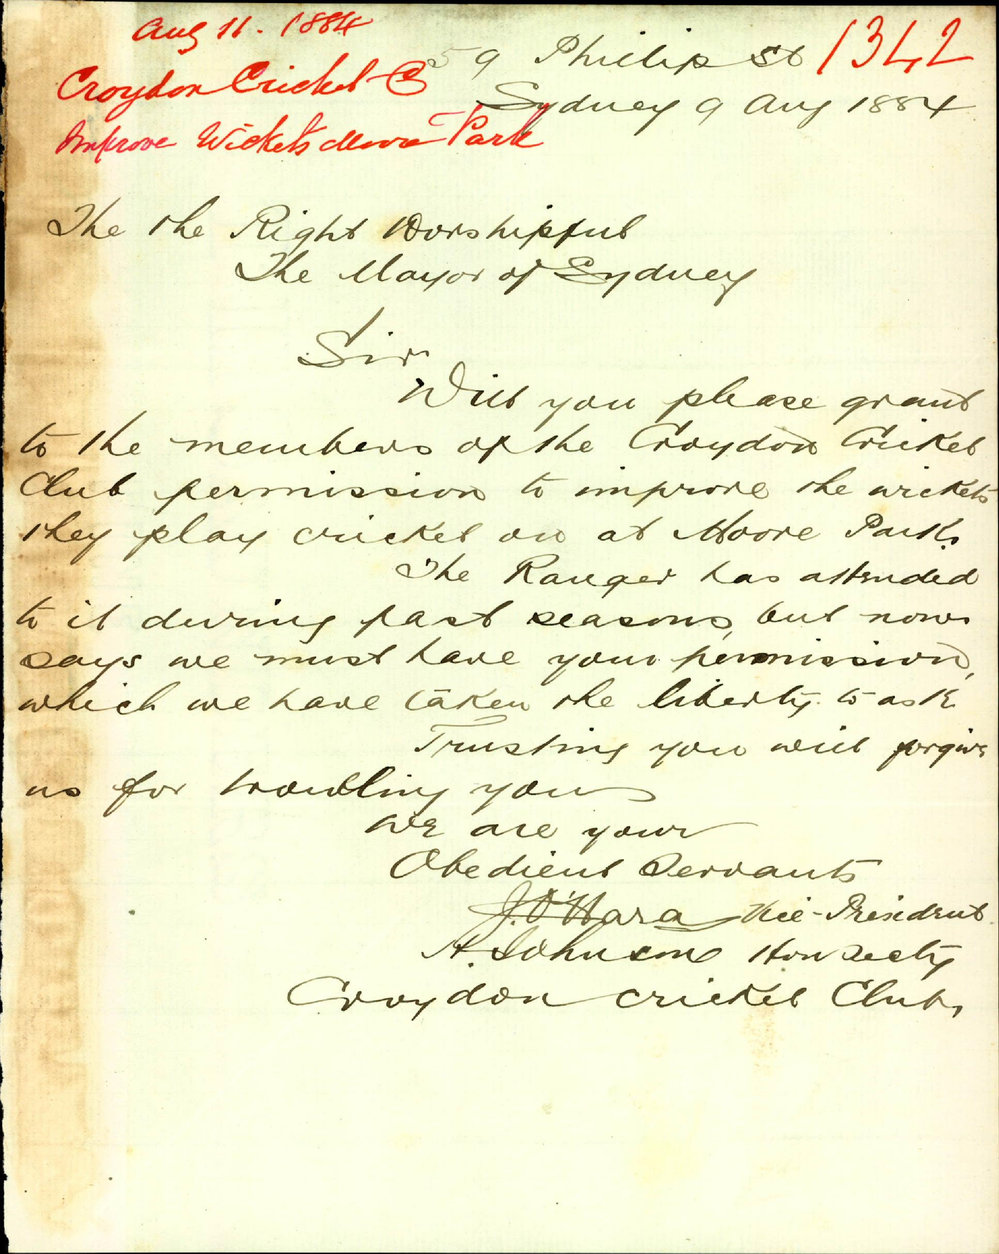 Aug 11. 1884
1342
Croydon Cricket C
Improve Wickets Moore Park
59 Phillip St
Sydney 9 Aug 1884
The the Right Worshipful
The Mayor of Sydney
Sir
Will you please grant
to the members of the Croydon Cricket
Club permission to improve the wickets
they play cricket on at Moore Park.
The Ranger has attended
to it during past seasons, but now
says we must have your permission,
which we have taken the liberty to ask
Trusting you will forgive
us for troubling you
We are your
Obedient Servants
J. O'Hara Vice-President
A. Johnson Hon Secty
Croydon Cricket Club,